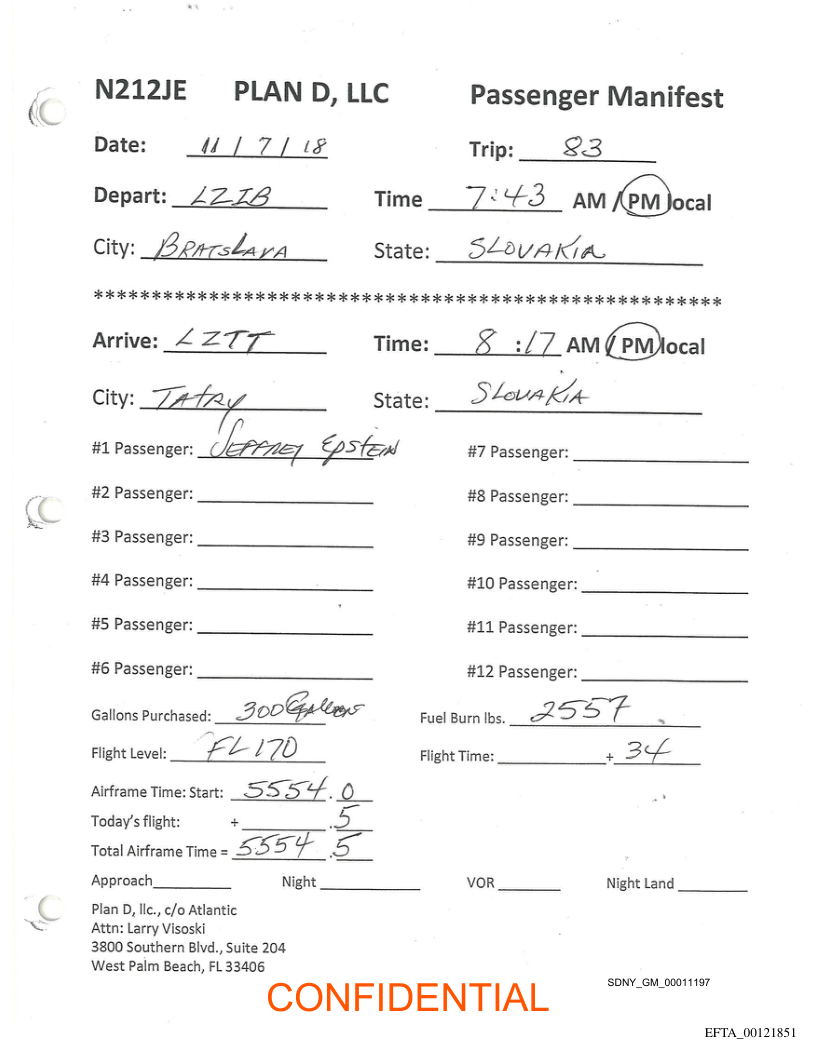 N212JE PLAN D, LLC Passenger Manifest
Date: 11 / 7 / 18 Trip: 83
Depart: LZIB Time 7:43 AM / PM local
City: BRATSLAVA State: SLOVAKIA
******************************************************
Arrive: LZTT Time: 8 :17 AM / PM local
City: TATRY State: SLOVAKIA
#1 Passenger: JEFFREY EPSTEIN #7 Passenger:
#2 Passenger: #8 Passenger:
#3 Passenger: #9 Passenger:
#4 Passenger: #10 Passenger:
#5 Passenger: #11 Passenger:
#6 Passenger: #12 Passenger:
Gallons Purchased: 300 Gallons Fuel Burn lbs. 2557
Flight Level: FL 170 Flight Time: + 34
Airframe Time: Start: 5554.0
Today's flight: + .5
Total Airframe Time = 5554.5
Approach Night VOR Night Land
Plan D, llc., c/o Atlantic
Attn: Larry Visoski
3800 Southern Blvd., Suite 204
West Palm Beach, FL 33406
SDNY_GM_00011197
CONFIDENTIAL
EFTA_00121851